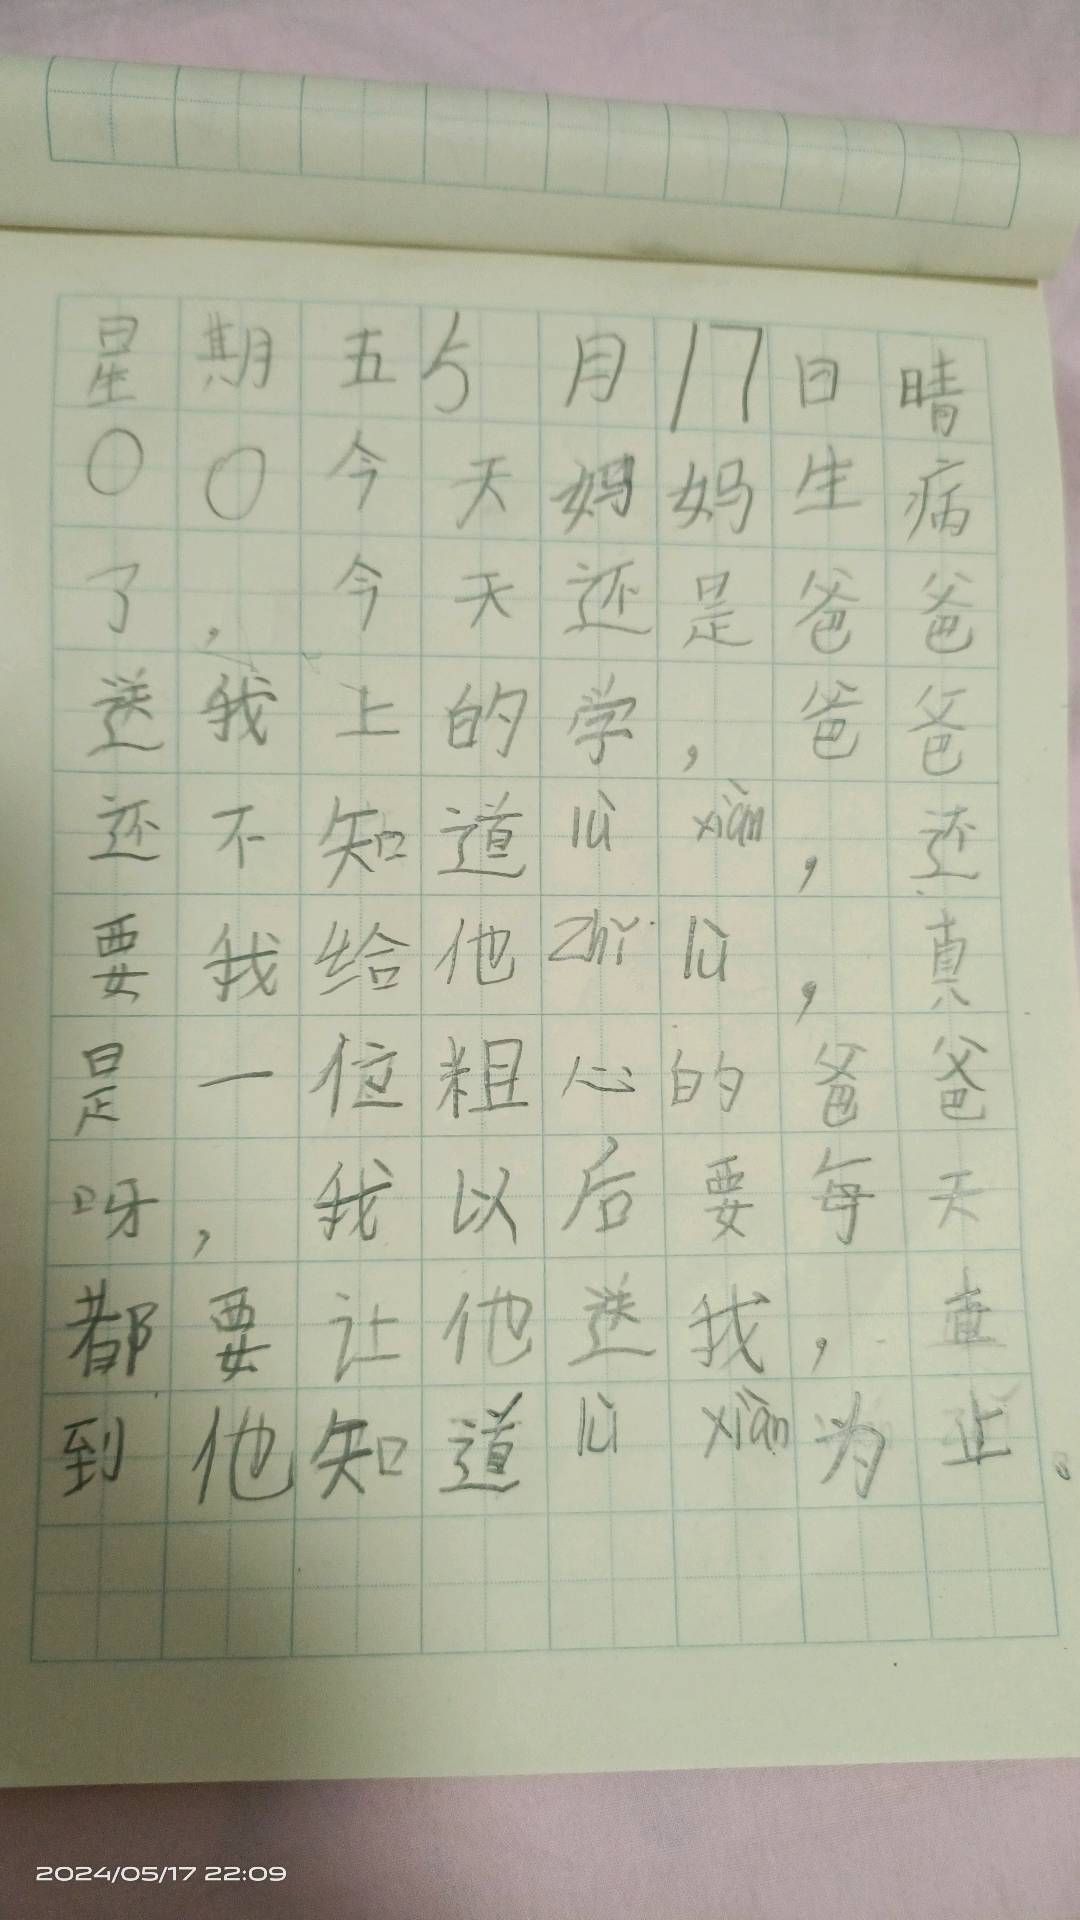 星期五5月17日晴
〇〇今天妈妈生病
了，今天还是爸爸
送我上的学，爸爸
还不知道lù xiàn，还
要我给他zhǐ lù，真
是一位粗心的爸爸
呀，我以后要每天
都要让他送我，直
到他知道lù xiàn为止。
2024/05/17 22:09